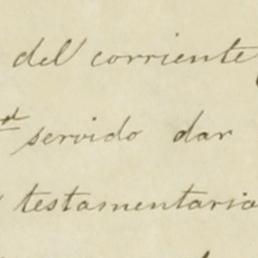 del corriente
servido dar
testamentaria